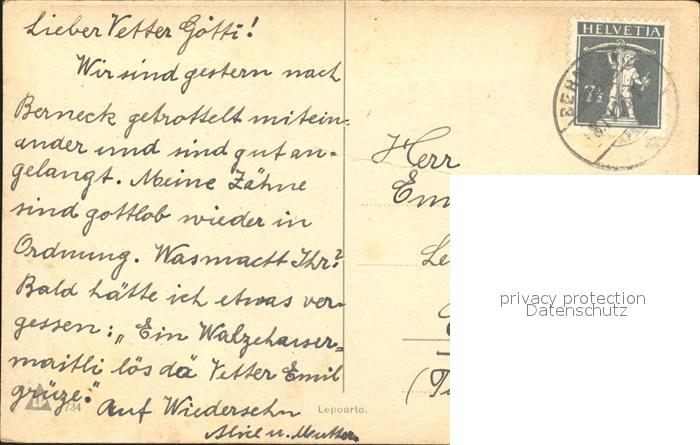 Lieber Vetter Götti!
Wir sind gestern nach
Berneck getrottelt mitein-
ander und sind gut an-
gelangt. Meine Zähne
sind gottlob wieder in
Ordnung. Was macht Ihr?
Bald hätte ich etwas ver-
gessen: „Ein Walzehauser-
maitli lös dä Vetter Emil
grüze."
Auf Wiedersehn
Alice u. Mutter.
734
Lepoarto.
HELVETIA
7½
BERN
Herr
Em
Le
(T
privacy protection
Datenschutz